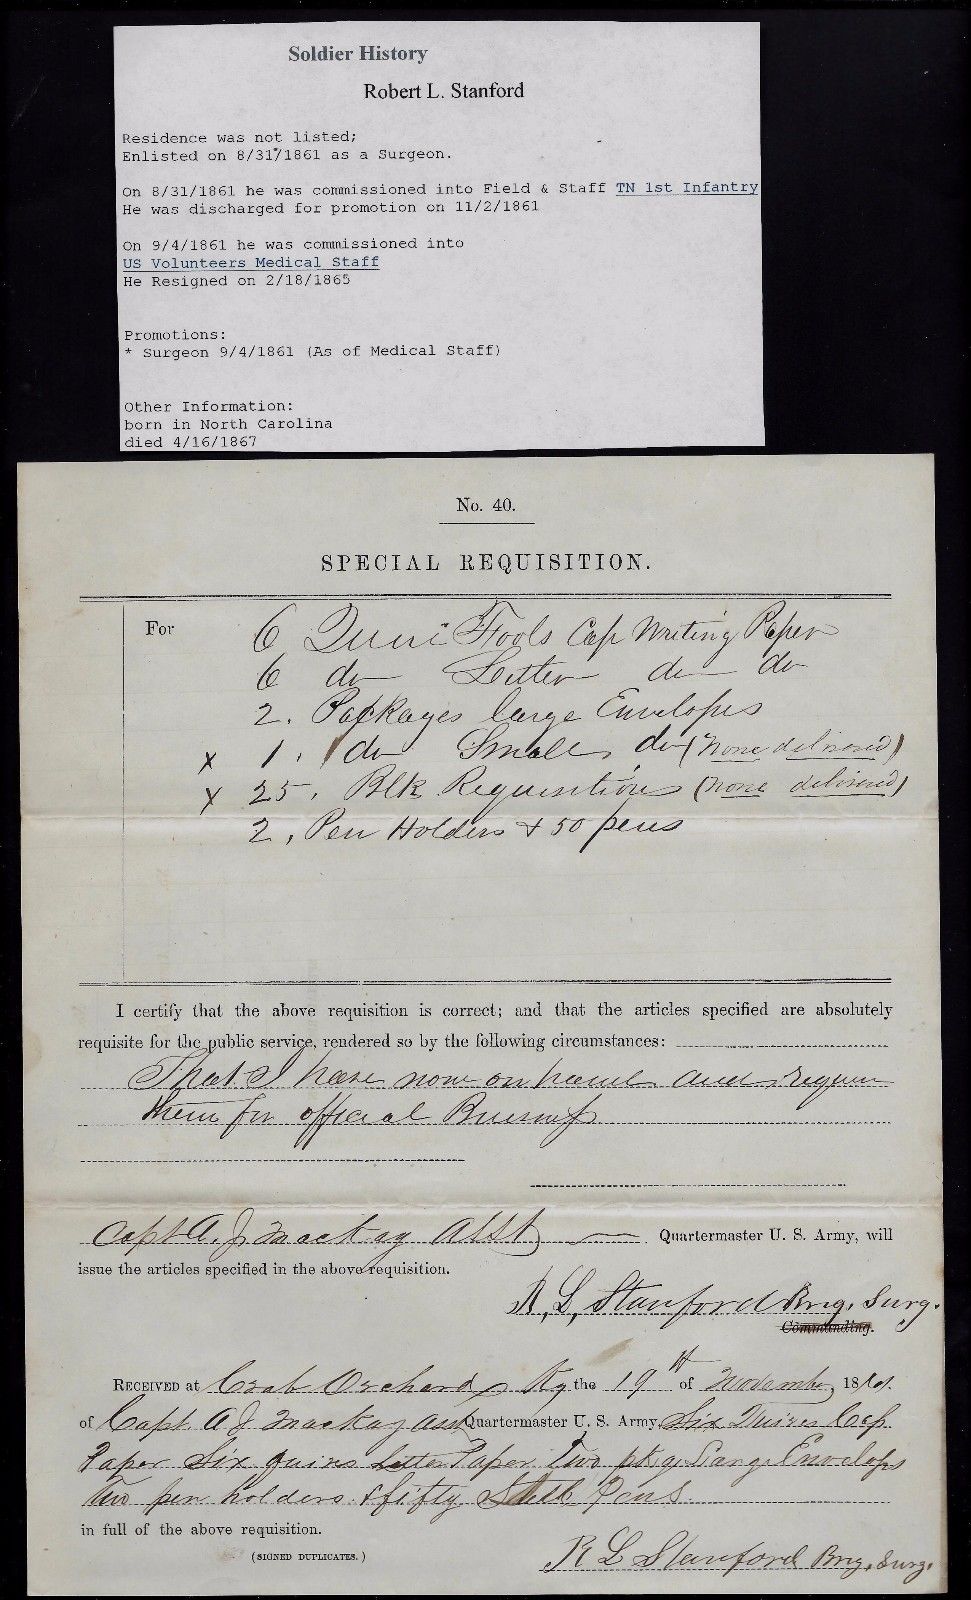 Soldier History
Robert L. Stanford
Residence was not listed;
Enlisted on 8/31/1861 as a Surgeon.
On 8/31/1861 he was commissioned into Field & Staff TN 1st Infantry
He was discharged for promotion on 11/2/1861
On 9/4/1861 he was commissioned into
US Volunteers Medical Staff
He Resigned on 2/18/1865
Promotions:
* Surgeon 9/4/1861 (As of Medical Staff)
Other Information:
born in North Carolina
died 4/16/1867
No. 40.
SPECIAL REQUISITION.
For 6 Quire Fools Cap Writing Paper
6 do Letter do do
2. Packages large Envelopes
x 1. do Small do (none delivered)
x 25, Blk Requisitions (none delivered)
2, Pen Holders + 50 pens
I certify that the above requisition is correct; and that the articles specified are absolutely
requisite for the public service, rendered so by the following circumstances:
That I have none on hand and require
them for official Business
Capt A. J. Mackay Asst Quartermaster U. S. Army, will
issue the articles specified in the above requisition.
R. L. Stanford Brig. Surg.
Commanding.
RECEIVED at Crab Orchard Ky the 19th of November, 1861.
of Capt A J Mackay Asst Quartermaster U. S. Army, Six Quires Cap
Paper Six quires Letter Paper Two pkg Large Envelops
Two pen holders & fifty Steel Pens
in full of the above requisition.
(SIGNED DUPLICATES.)
R L Stanford Brig. Surg.